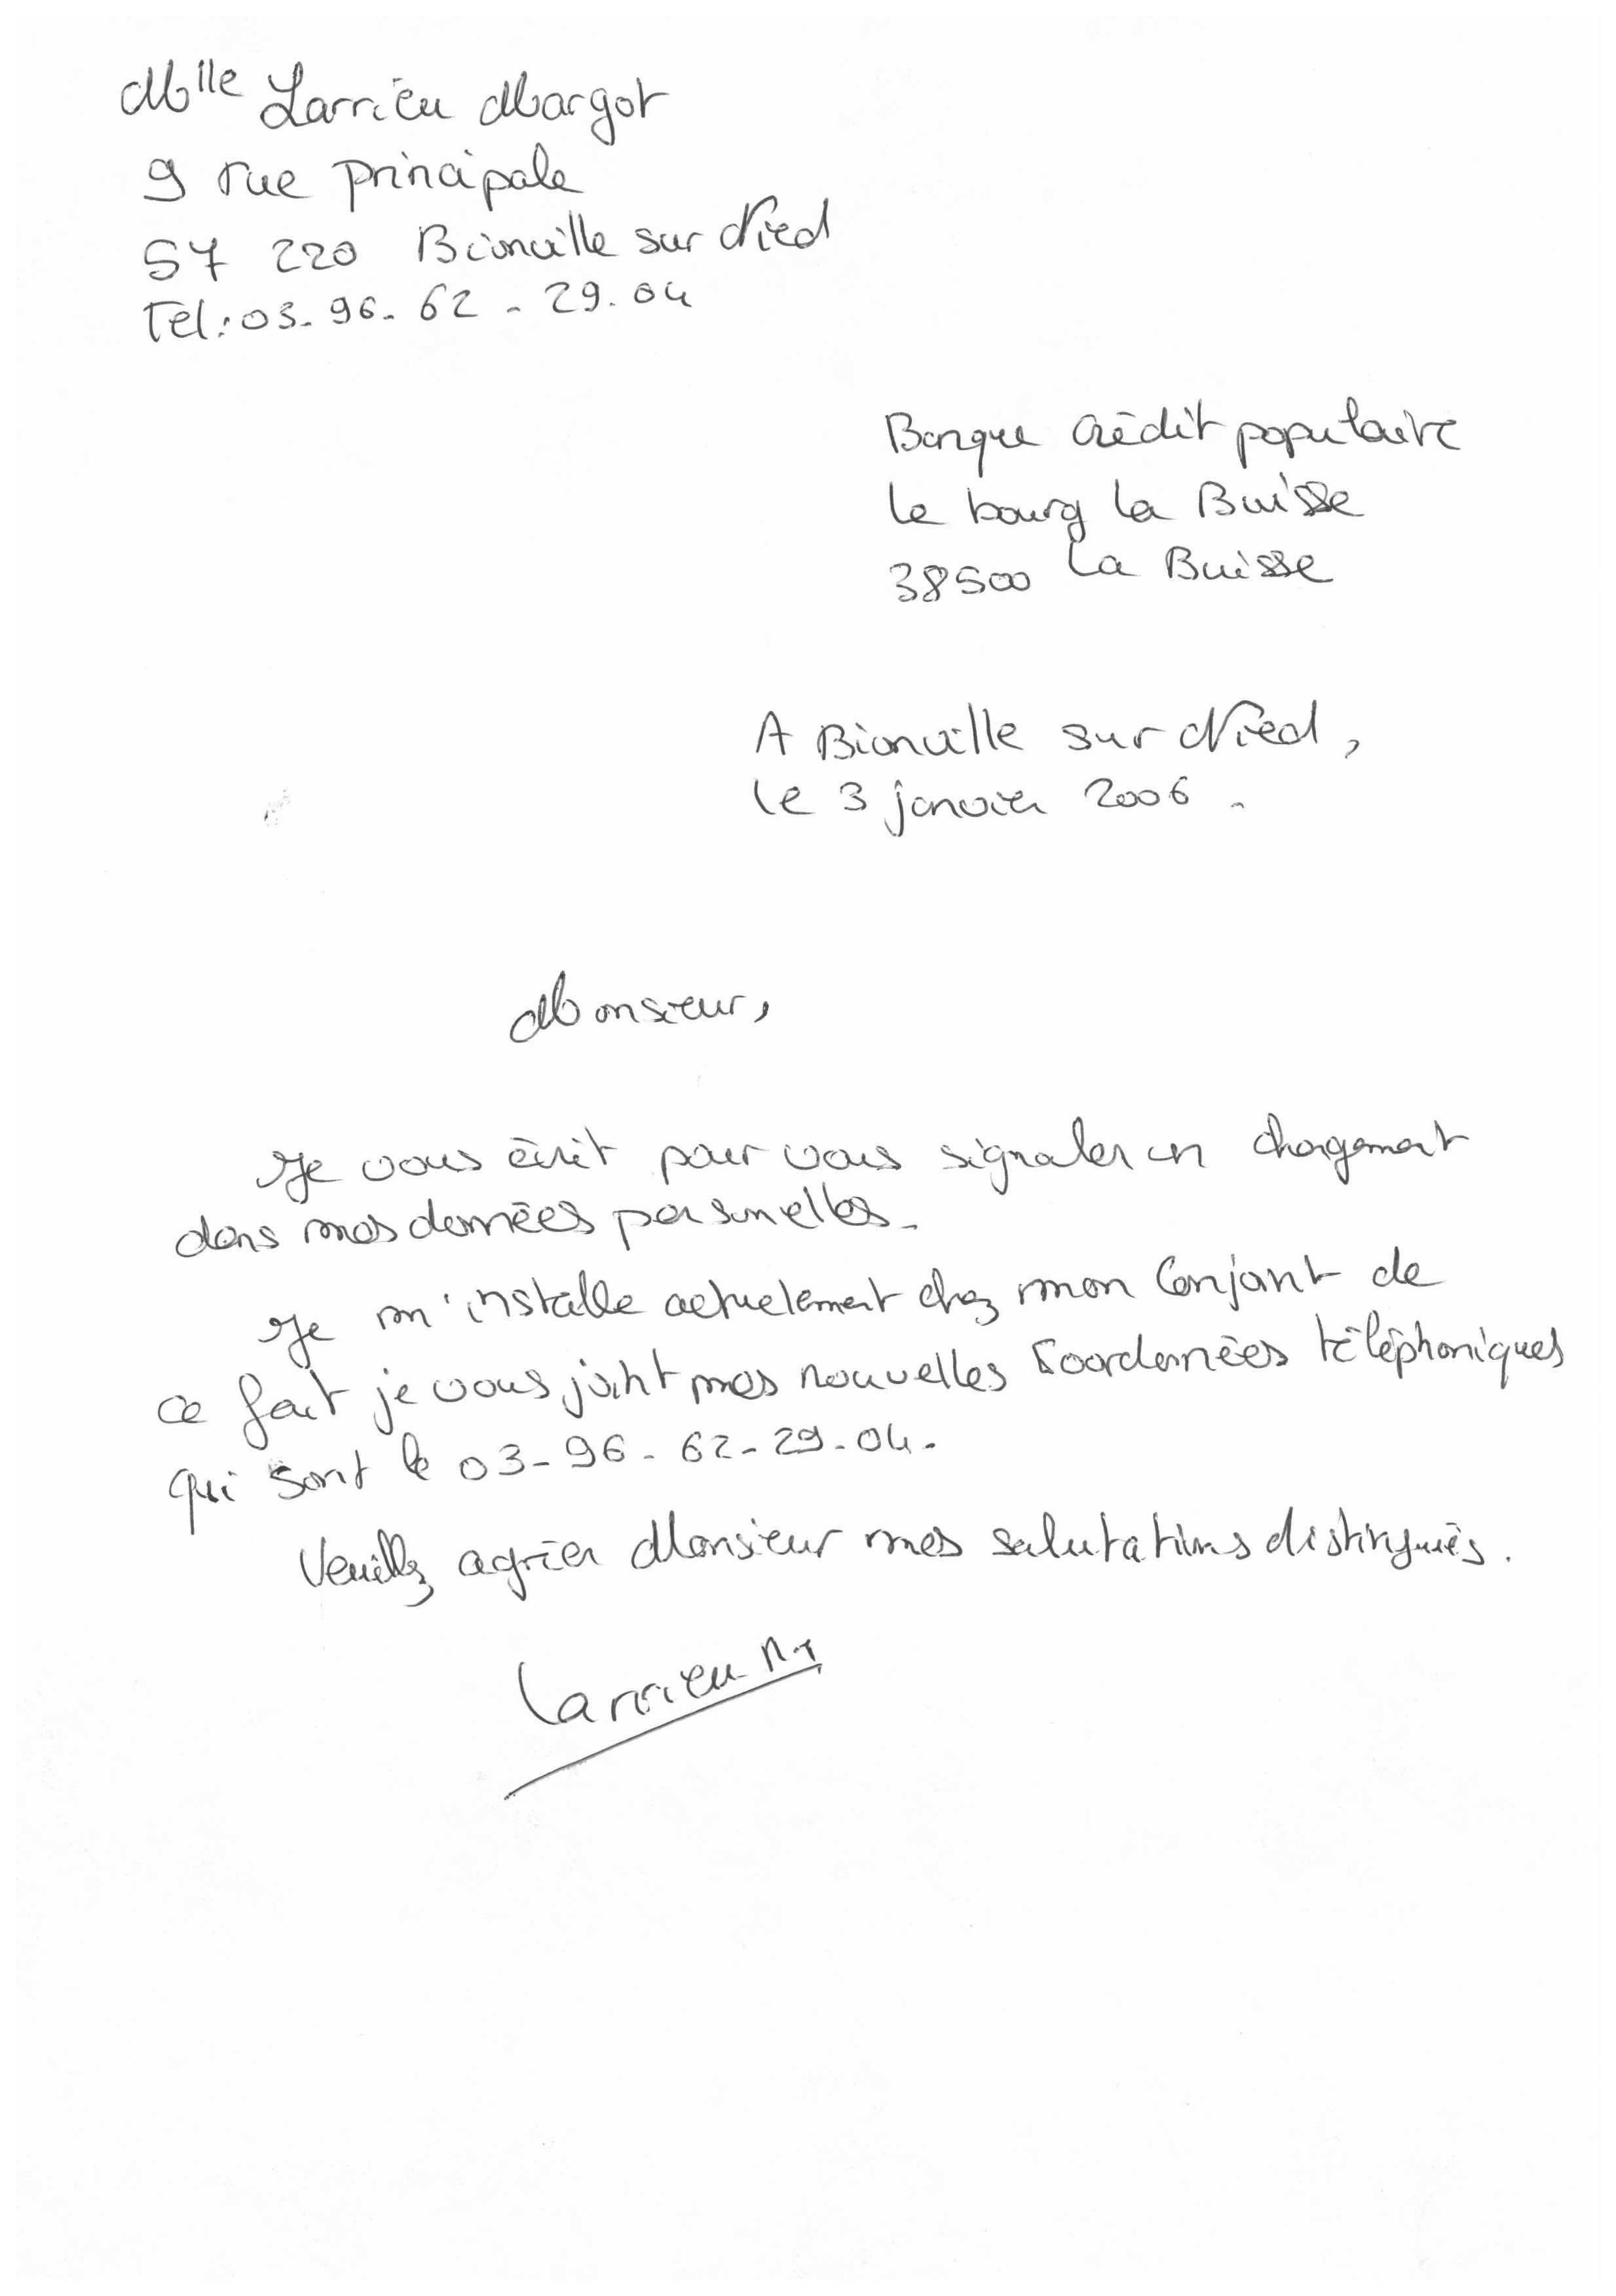 Mlle Larrieu Margot
9 rue principale
57 220 Bionville sur Nied
Tel: 03-96-62-29.04
Banque crédit populaire
le bourg la Buisse
38500 La Buisse
A Bionville sur Nied,
le 3 janvier 2006.
Monsieur,
Je vous écrit pour vous signaler un changement
dans mes données personnelles.
Je m'installe actuelement chez mon Conjoint de
ce fait je vous joint mes nouvelles Coordonnées téléphoniques
qui sont le 03-96-62-29-04.
Veuillez agréer Monsieur mes salutations distingués.
Larrieu M